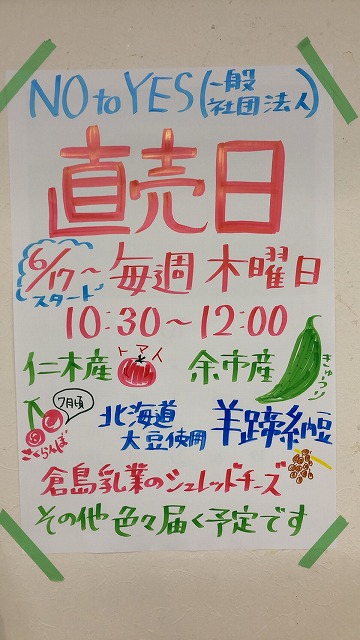 NO to YES (一般社団法人)
直売日
6/17~ 毎週 木曜日
スタート
10:30~12:00
仁木産 トマト 余市産 きゅうり
7月頃
さくらんぼ
北海道大豆使用 羊蹄納豆
倉島乳業のシュレッドチーズ
その他 色々届く予定です